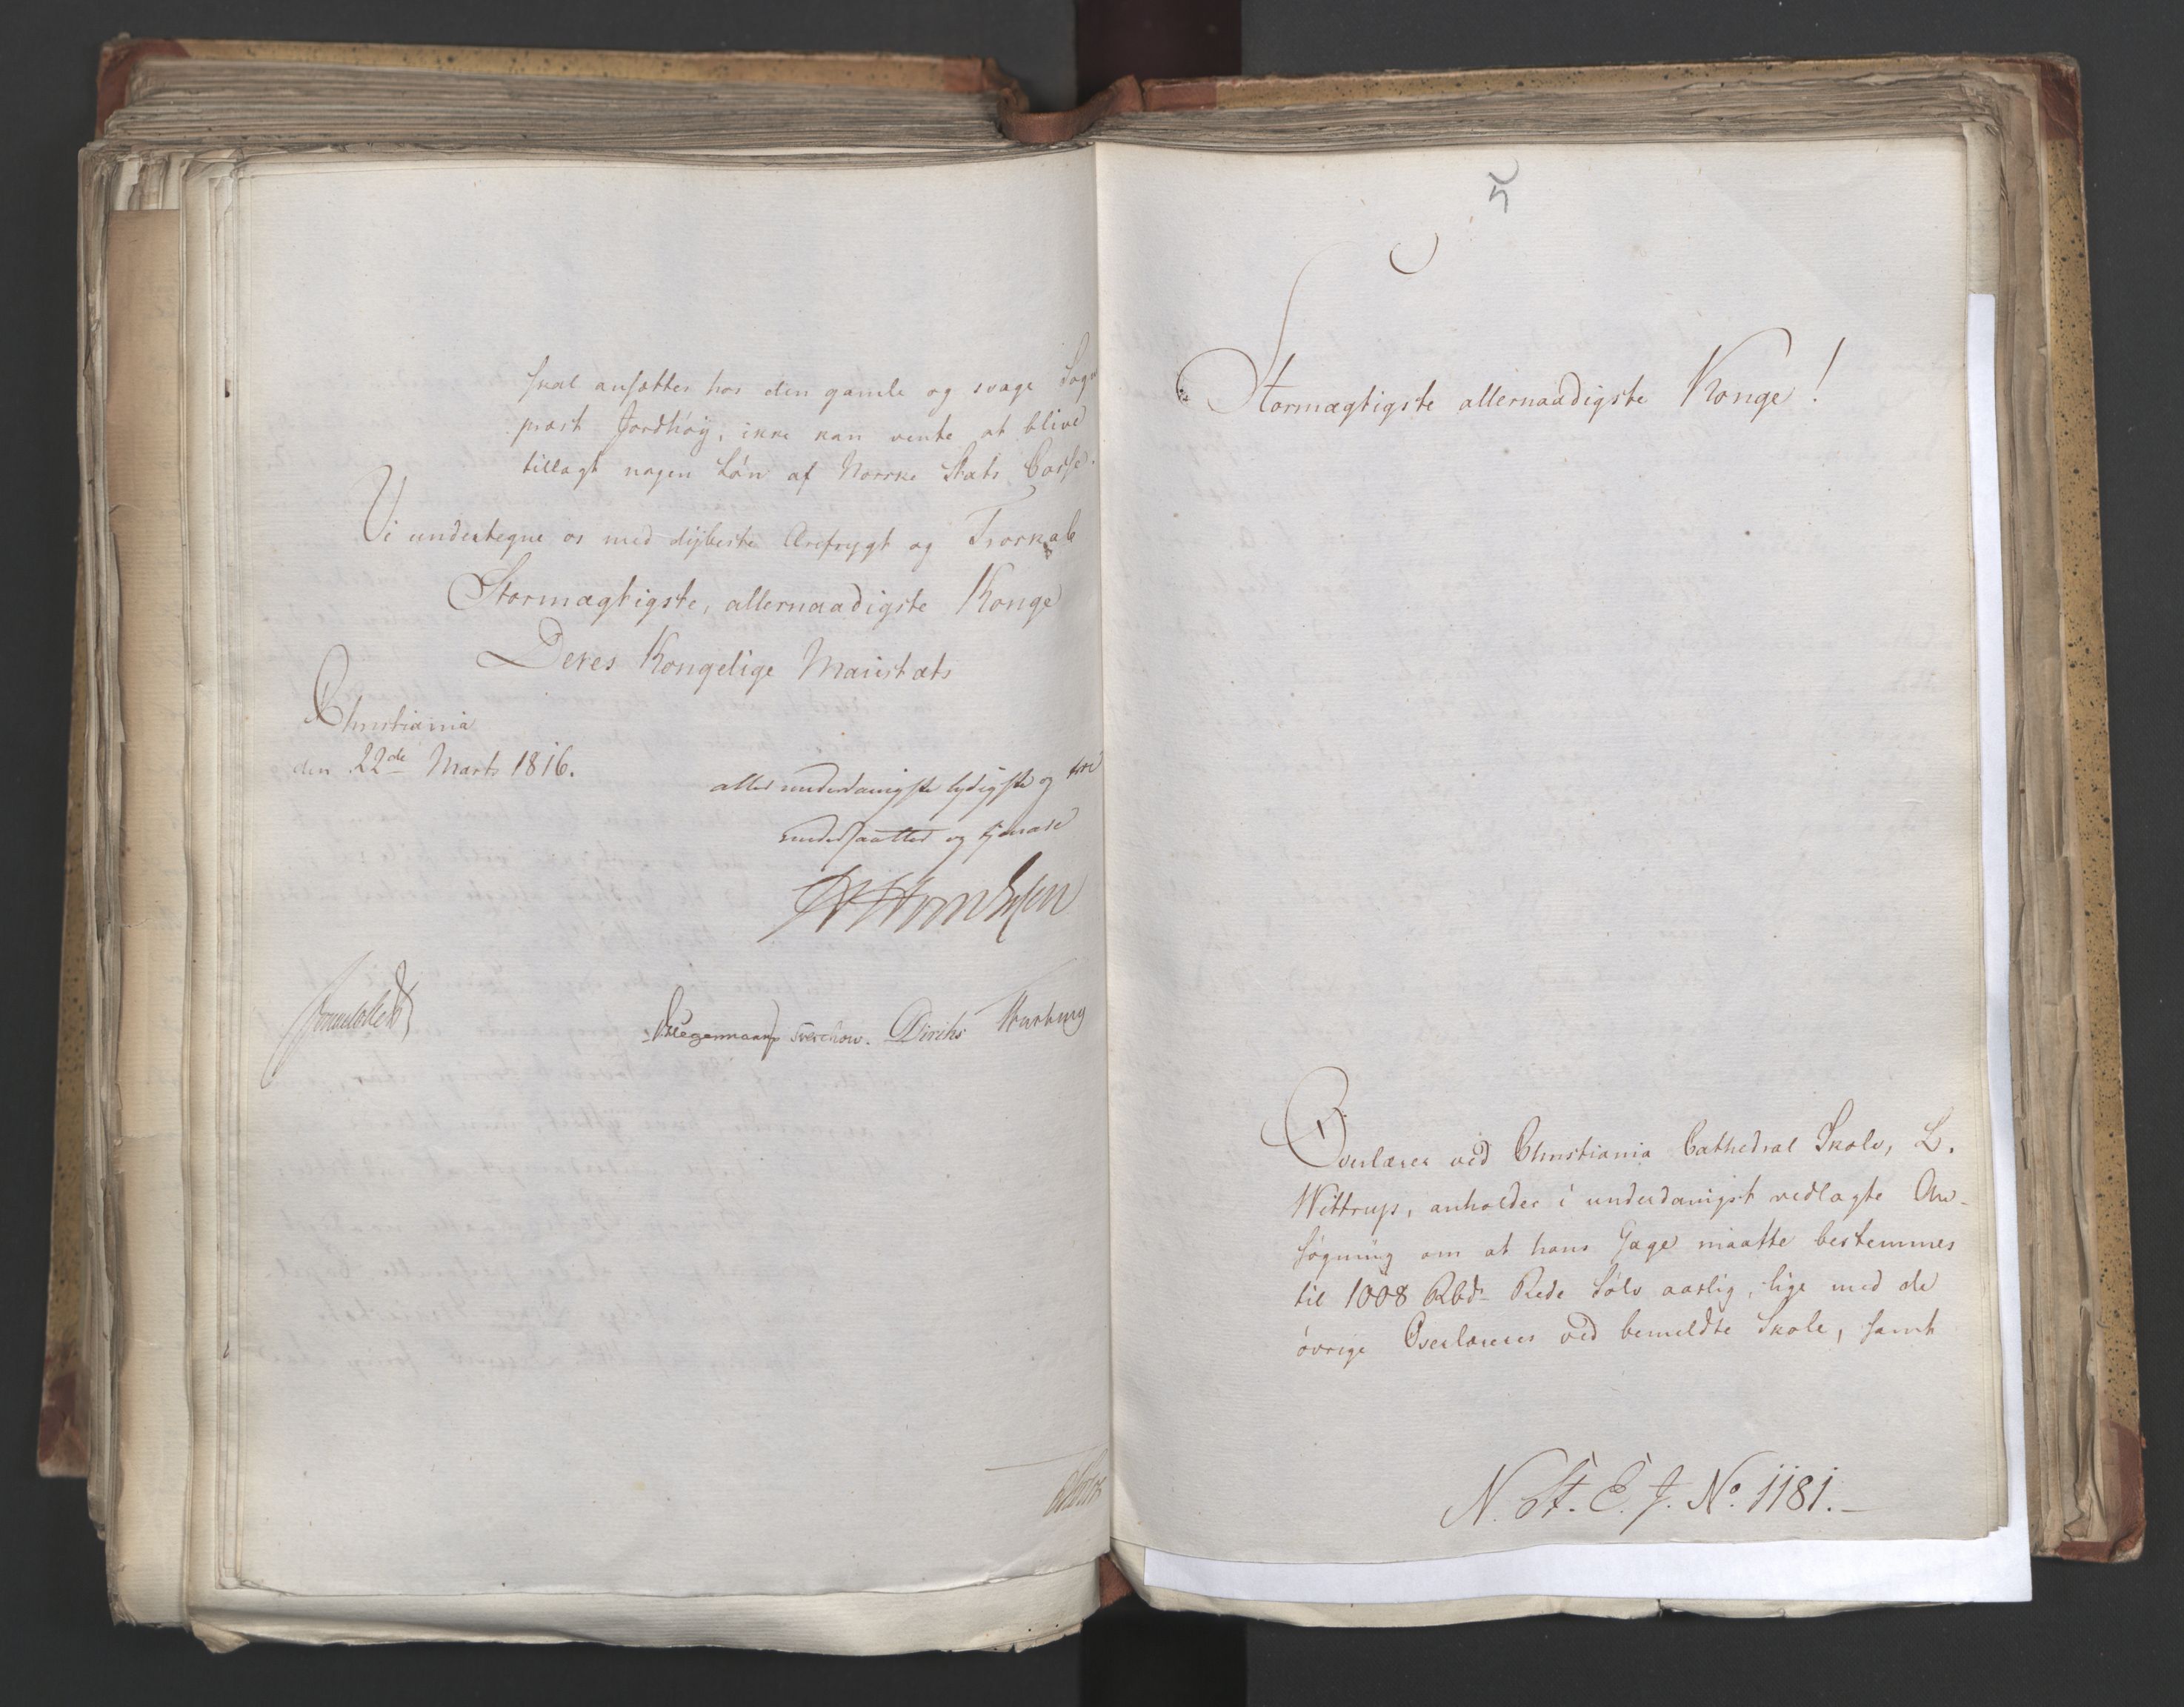 skal ansættes hos den gamle og svage Sogne
præst Jordhøy, ikke kan vente at blive
tillagt nogen Løn af Norske Stats Casse.
Vi undertegne os med dybeste Ærefrygt og Troskab
Stormægtigste, allernaadigste Konge
Deres Kongelige Maiestæts
Christiania
den 22de Marts 1816.
allerunderdanigste lydigste og troe
undersaatter og tjenere
Sommerhielm Hegermann Diriks
5
Stormægtigste allernaadigste Konge!
Overlærer ved Christiania Cathedral Skole, L.
Wittrup, anholder i underdanigst vedlagte An-
søgning om at hans Gage maatte bestemmes
til 1008 Rbd. Rede Sølv aarlig, lige med de
øvrige Overlærere ved bemeldte Skole, samt
N. St. E. J. No. 1181.-